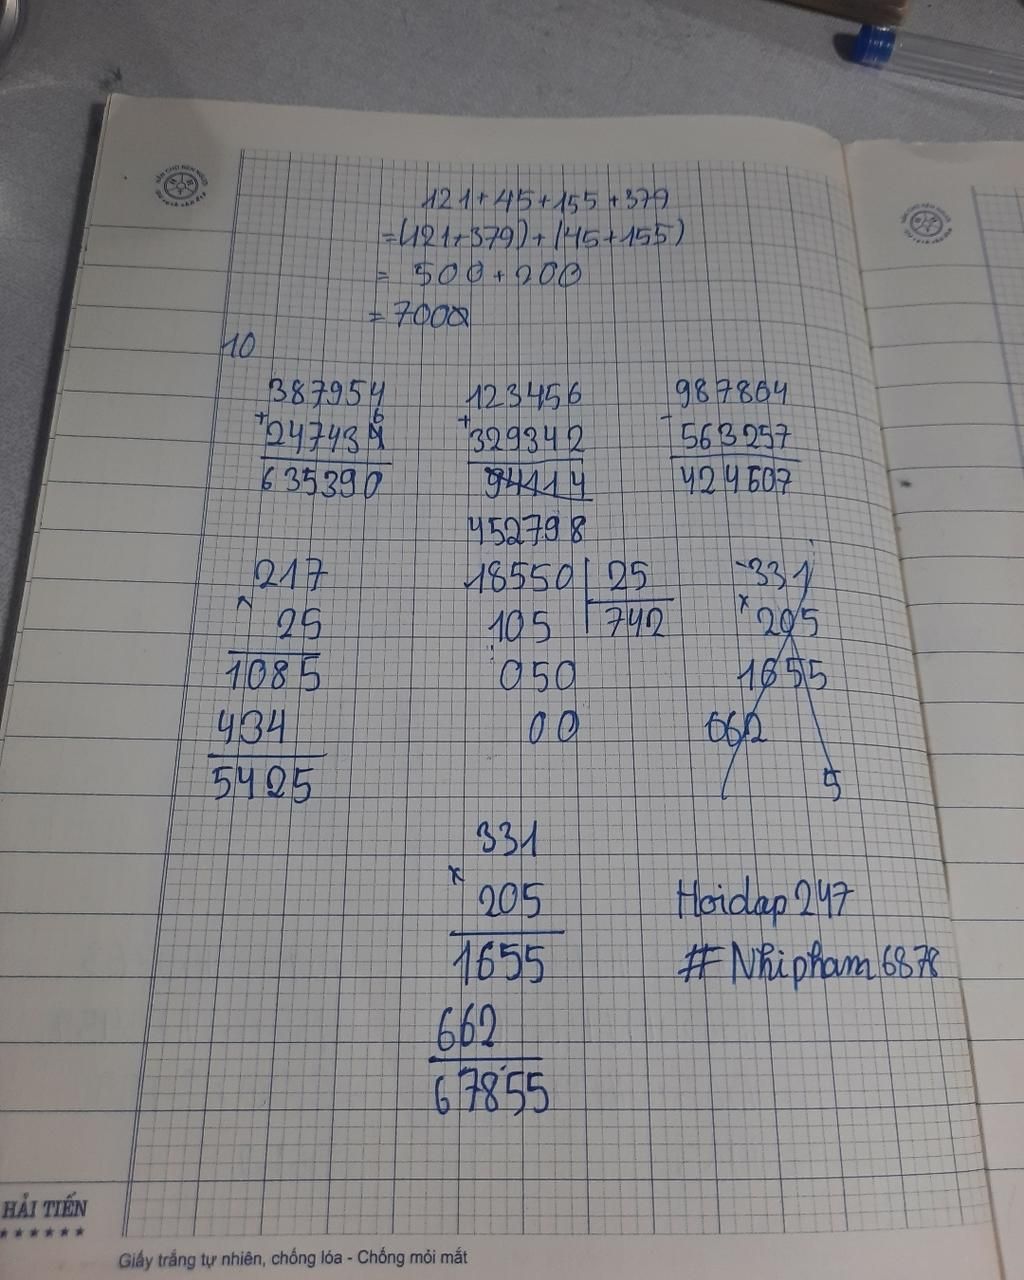 121+45+155+379
=(121+379)+(45+155)
= 500+200
= 700
10
387954 123456 987864
+ + -
247436 329342 563257
635390 94114 424607
452798
217 18550 25 331
x x
25 105 742 205
1085 050 1655
434 00 662
5425 5
331
x
205 Hoidap 247
1655 # Nhi pham 6878
662
67855
HẢI TIẾN
★★★★★★
Giấy trắng tự nhiên, chống lóa - Chống mỏi mắt